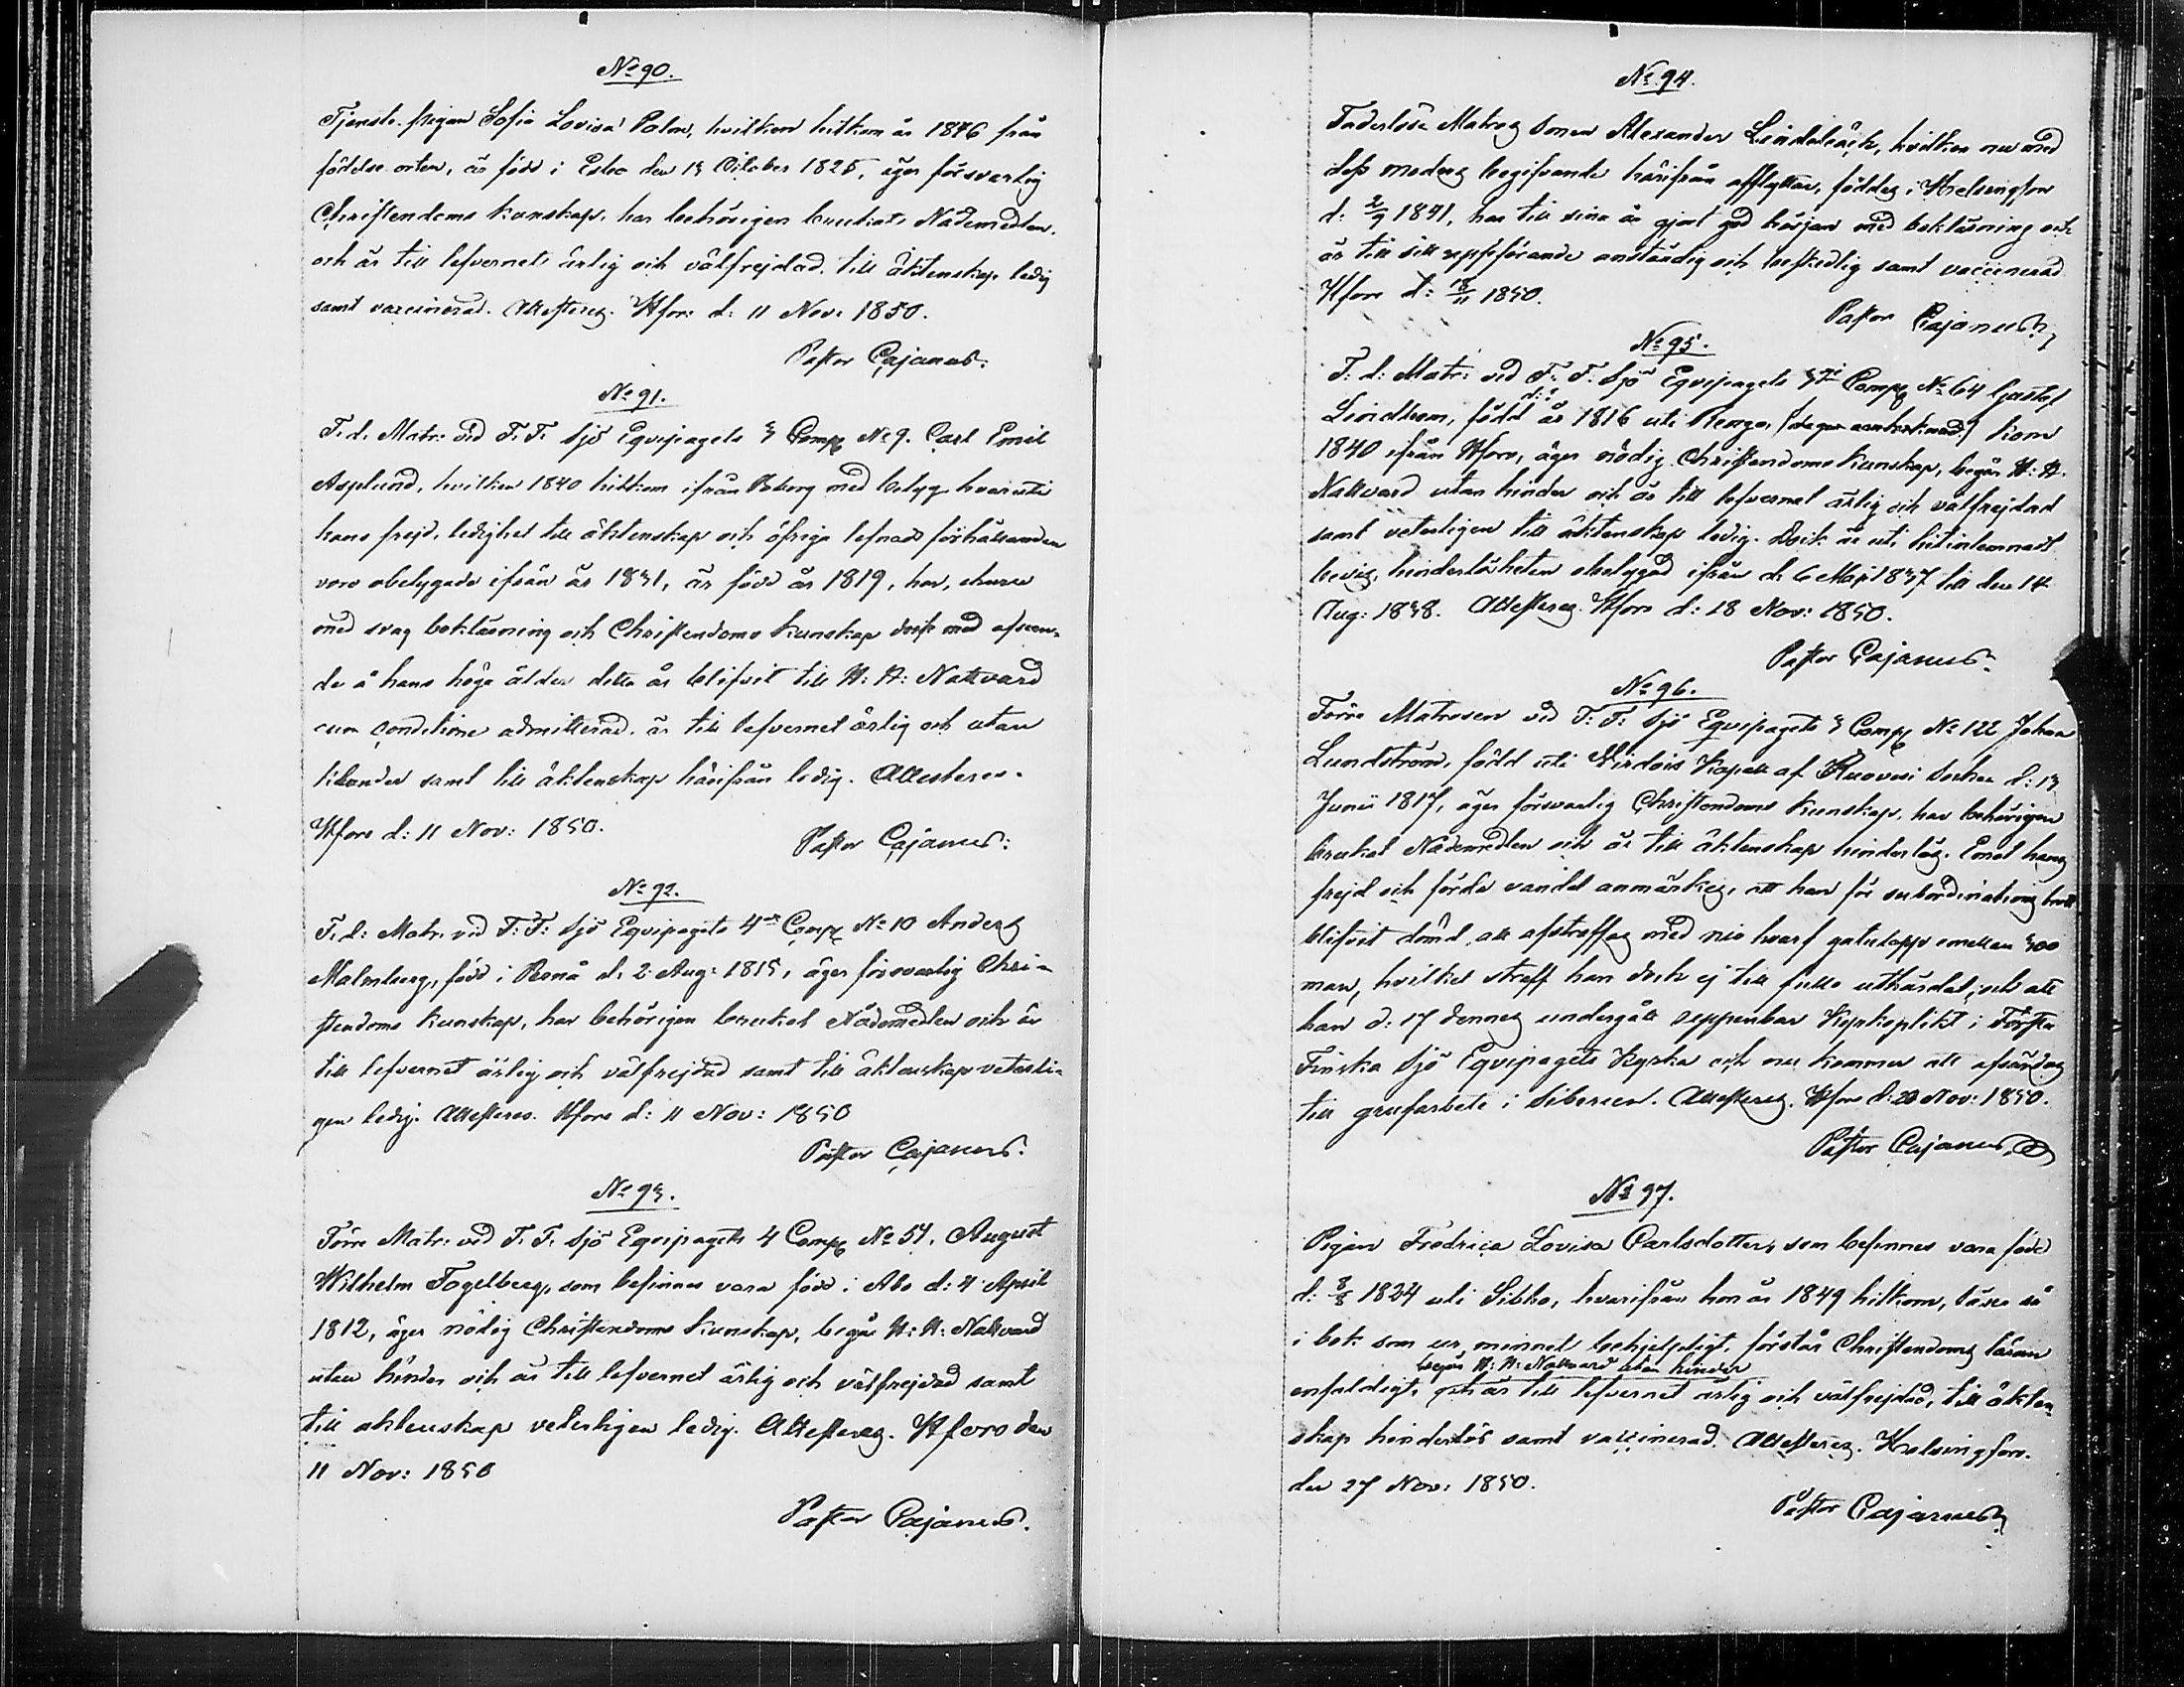 No 90.
Tjenste pigan Sofia Lovisa Palm, hvilken hitkom år 1846 från
födelse orten, är född i Esbo den 13 October 1825, äger försvarlig
Christendoms kunskap, har behörigen brukat Nådemedlen,
och är till lefvernet ärlig och välfrejdad, till äktenskap ledig
samt vaccinerad. Attesteras. Hfors d: 11 Nov: 1850.
Pastor Cajanus.
No 91.
F. d. Matr: vid F. F. Sjö Equipagets 3 Comp No 9. Carl Emil
Asplund, hvilken 1840 hitkom ifrån med betyg hvaruti
hans frejd, ledighet till äktenskap och öfriga lefnads förhållanden
voro obetygade ifrån år 1831, är född år 1819, har, ehuru
med svag bokläsning och Christendoms kunskap dock med afseen-
de å hans höga ålder detta år blifvit till H: H: Nattvard
cum conditione admitterad, är till lefvernet ärlig och utan
samt till äktenskap härifrån ledig. Attesteras.
Hfors d: 11 Nov: 1850.
Pastor Cajanus.
No 92.
F. d: Matr. vid F: F: Sjö Equipagets 4de Comp No 10 Anders
Malmberg, född i Pernå d. 2 Aug: 1815, äger försvarlig Chri-
stendoms kunskap, har behörigen brukat Nådemedlen och är
till lefvernet ärlig och välfrejdad samt till äktenskap veterli-
gen ledig. Attesteras. Hfors d: 11 Nov: 1850
Pastor Cajanus.
No 93.
Förre Matr: vid F. F. Sjö Equipagets 4 Comp No 54. August
Wilhelm Fogelberg, som befinnes vara född i Åbo d: 4 April
1812, äger nödig Christendoms kunskap, begår H: H: Nattvard
utan hinder och är till lefvernet ärlig och välfrejdad samt
till äktenskap veterligen ledig. Attesteras. Hfors den
11 Nov: 1850
Pastor Cajanus.
No 94.
Faderlöse Matros Sonen Alexander Lindebäck, hvilken nu med
dess moders begifvande härifrån afflyttar, föddes i Helsingfors
d: 2/9 1841, har till sina år gjort god början med bokläsning och
är till sitt uppförande anständig och beskedlig samt vaccinerad
Hfors d: 18/11 1850.
Pastor Cajanus
No 95.
F: d: Matr: vid F: F: Sjö Equipagets 3je Comp No 64 Gustaf
Lindbom, född år 1816 uti Rengo, kom
1840 ifrån Hfors, äger nödig Christendoms kunskap, begår H: H.
Nattvard utan hinder och är till lefvernet ärlig och välfrejdad
samt veterligen till äktenskap ledig. Dock är uti hitinlemnadt
bevis, hinderlösheten obetygad ifrån d. 6 Maji 1837 till den 14
Aug: 1838. Attesteras. Hfors d: 18 Nov: 1850.
Pastor Cajanus.
No 96.
Förre Matrosen vid F: F: Sjö Equipagets 3 Comp No 122 Johan
Lundström, född uti Virdois Kapell af Ruovesi Socken d: 13
Junii 1817, äger försvarlig Christendoms kunskap, har behörigen
brukat Nådemedlen och är till äktenskap hinderlös. Emot hans
frejd och förda vandel anmärkes, att han för subordinations brott
blifvit dömd att afstraffas med nio hvarf gatulopp emellan 300
man, hvilket straff han dock ej till fullo uthärdat, och att
han d: 17 dennes undergått uppenbar Kyrkoplikt i Första
Finska Sjö Equipagets Kyrka och nu kommer att afsändas
till grufarbete i Siberien. Attesteras. Hfors d: 20 Nov: 1850.
Pastor Cajanus
No 97.
Pigan Fredrica Lovisa Carlsdotter, som befinnes vara född
d: 8/8 1824 uti Sibbo, hvarifrån hon år 1849 hitkom, läser så
i bok som ur minnet behjelpligt, förstår Christendoms läran
begår H: H: Nattvard utan hinder
enfaldigt, och är till lefvernet ärlig och välfrejdad, till äkten-
skap hinderlös samt vaccinerad. Attesteras. Helsingfors.
den 27 Nov: 1850.
Pastor Cajanus